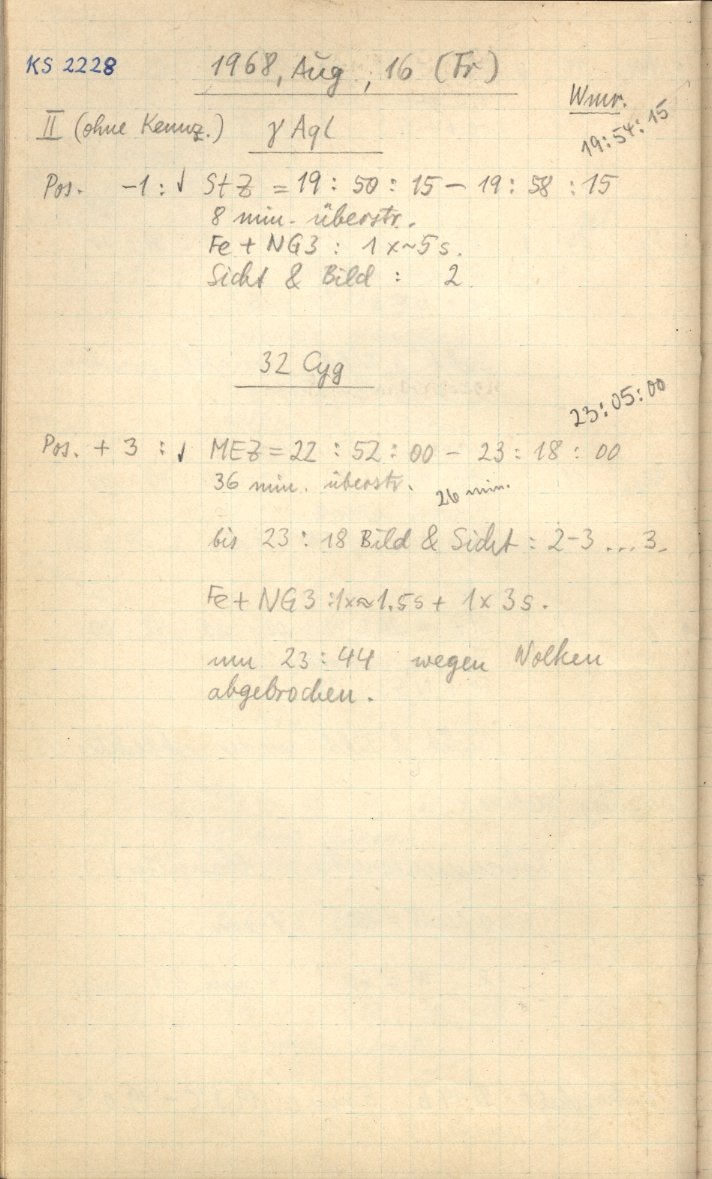 KS 2228
1968, Aug., 16 (Fr)
Wmr.
II (ohne Kennz.) γ Aql
19:54:15
Pos. -1 : √ StZ = 19 : 50 : 15 – 19 : 58 : 15
8 min. überstr.
Fe + NG3 : 1 x ~ 5 s.
Sicht & Bild : 2
32 Cyg
23:05:00
Pos. + 3 : √ MEZ = 22 : 52 : 00 – 23 : 18 : 00
36 min. überstr. 26 min.
bis 23 : 18 Bild & Sicht : 2-3 ... 3.
Fe + NG3 : 1x≈1.5s + 1x 3s.
um 23 : 44 wegen Wolken
abgebrochen.